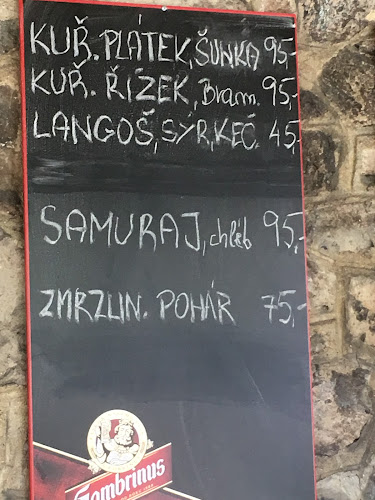 KUŘ. PLÁTEK, ŠUNKA 95,-
KUŘ. ŘÍZEK, Bram. 95,-
LANGOŠ, SÝR, KEČ. 45,-
SAMURAJ, chléb 95,-
ZMRZLIN. POHÁR 75,-
Gambrinus